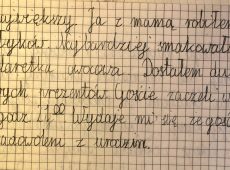 największy. Ja z mamą robiłem
zyków. Najbardziej smakowała
laretka owocowa. Dostałem du
nych prezentów. Goście zaczeli w
godz 21⁰⁰ Wydaje mi się że goś
adowoleni z urodzin.